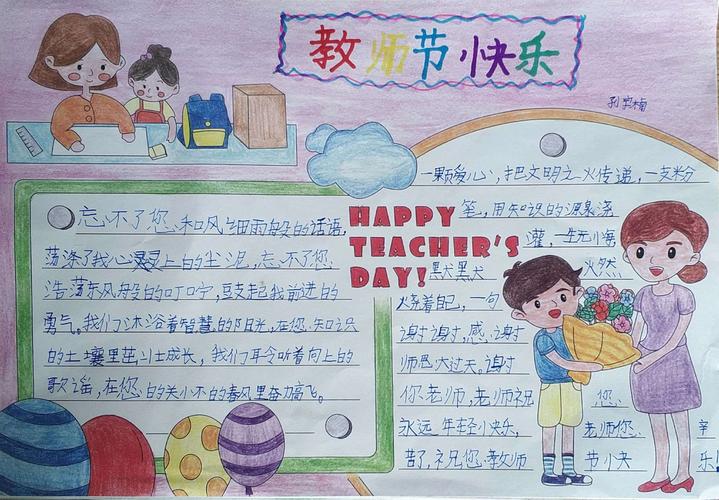 教师节快乐
忘不了您和风细雨般的话语，
荡涤了我心灵上的尘泥，忘不了您
浩荡东风般的叮咛，鼓起我前进的
勇气。我们沐浴着智慧的阳光，在您知识
的土壤里茁壮成长，我们聆听着向上的
歌谣，在您的关怀的春风里奋力高飞。
HAPPY
TEACHER'S
DAY!
一颗爱心，把文明之火传递，一支粉
笔，用知识的源泉浇
灌，一生无悔
默默 燃
烧着自己，一句
谢谢，感谢
师恩大过天。谢谢
你老师，老师祝 您
永远年轻快乐， 老师您 辛
苦了，祝您教师 节快 乐！